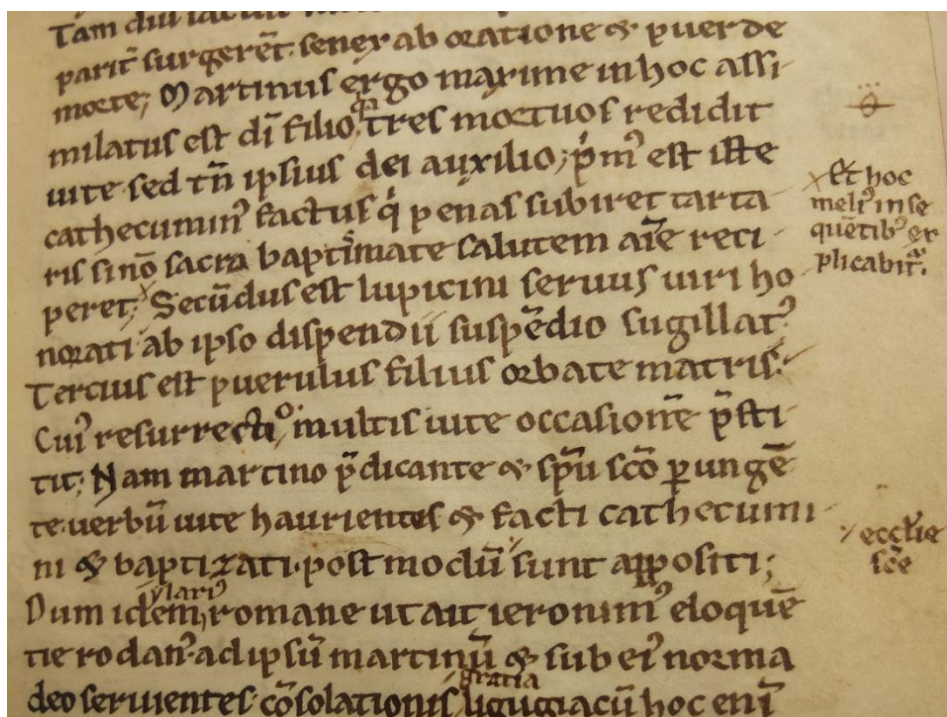 Tam diu
parit̄ surgerēt. senex ab oratione & puer de
morte; Martinus ergo maxime in hoc assi-
milatus est dī filio, tres mortuos redidit
uite. sed tn̄ ipsius dei auxilio; p̍mꝰ est iste
cathecuminꝰ factus q̍ penas subiret tarta
ris si nō sacro baptismate salutem aīe reci-
peret; Secūdus est lupicini seruus uiri ho
norati ab ipso dispendii suspēdio sugillatꝰ.
Tercius est puerulus filius orbate matris.
Cuiꝰ resurrectio, multis uite occasionē p̄sti-
tit; Nam martino p̄dicante & sp̄u sc̄o ꝑungē
te uerbū uite haurientes & facti cathecumi-
ni & baptizati. postmodū sunt appositi;
ylariꝰ
Dum idem, romane ut ait ieronimꝰ eloquē
tie rodanꝰ. ad ipsū martinū & sub eiꝰ norma
gratia
deo seruientes. cōsolationis, ligugiacū hoc enī
Et hoc
meliꝰ in se
quētibꝰ ex
plicabit᷑.
eccl̄ie
sc̄e